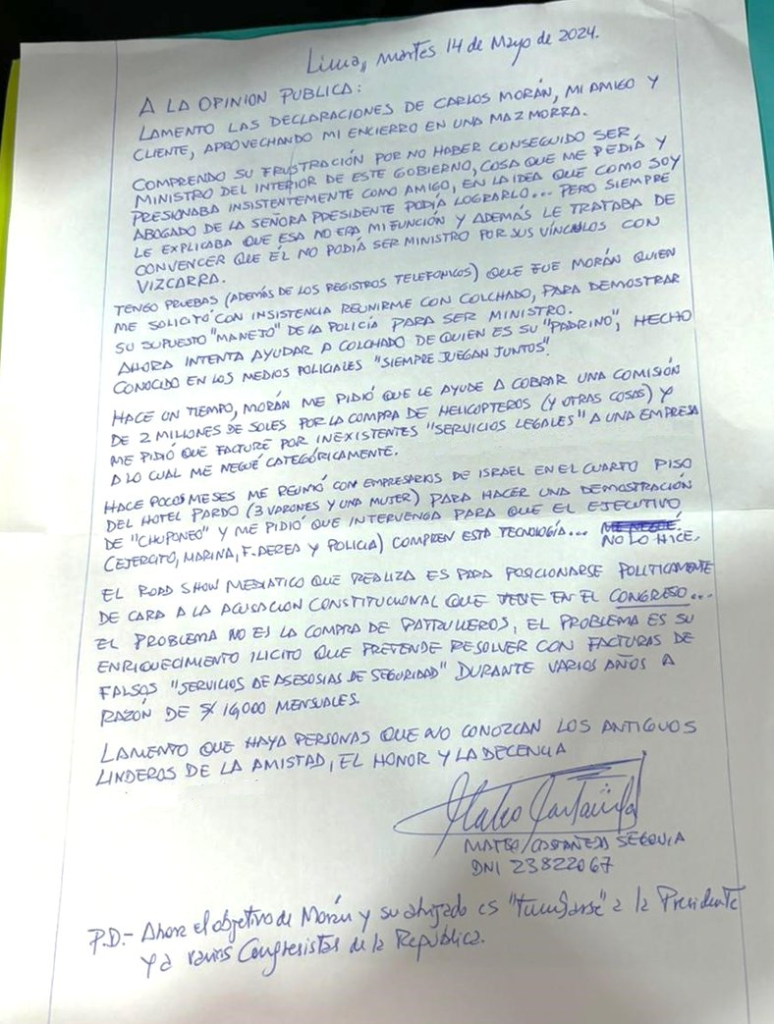 Lima, martes 14 de Mayo de 2024.
A LA OPINION PUBLICA:
LAMENTO LAS DECLARACIONES DE CARLOS MORÁN, MI AMIGO Y
CLIENTE, APROVECHANDO MI ENCIERRO EN UNA MAZMORRA.
COMPRENDO SU FRUSTRACIÓN POR NO HABER CONSEGUIDO SER
MINISTRO DEL INTERIOR DE ESTE GOBIERNO, COSA QUE ME PEDÍA Y
PRESIONABA INSISTENTEMENTE COMO AMIGO, EN LA IDEA QUE COMO SOY
ABOGADO DE LA SEÑORA PRESIDENTE PODÍA LOGRARLO... PERO SIEMPRE
LE EXPLICABA QUE ESA NO ERA MI FUNCIÓN Y ADEMÁS LE TRATABA DE
CONVENCER QUE ÉL NO PODÍA SER MINISTRO POR SUS VÍNCULOS CON
VIZCARRA.
TENGO PRUEBAS (ADEMÁS DE LOS REGISTROS TELEFONICOS) QUE FUE MORÁN QUIEN
ME SOLICITÓ CON INSISTENCIA REUNIRME CON COLCHADO, PARA DEMOSTRAR
SU SUPUESTO "MANEJO" DE LA POLICÍA PARA SER MINISTRO.
AHORA INTENTA AYUDAR A COLCHADO DE QUIEN ES SU "PADRINO", HECHO
CONOCIDO EN LOS MEDIOS POLICIALES "SIEMPRE JUEGAN JUNTOS".
HACE UN TIEMPO, MORÁN ME PIDIÓ QUE LE AYUDE A COBRAR UNA COMISIÓN
DE 2 MILLONES DE SOLES POR LA COMPRA DE HELICOPTEROS (Y OTRAS COSAS) Y
ME PIDIÓ QUE FACTURE POR INEXISTENTES "SERVICIOS LEGALES" A UNA EMPRESA
A LO CUAL ME NEGUÉ CATEGÓRICAMENTE.
HACE POCOS MESES ME REUNIÓ CON EMPRESARIOS DE ISRAEL EN EL CUARTO PISO
DEL HOTEL PARDO (3 VARONES Y UNA MUJER) PARA HACER UNA DEMOSTRACIÓN
DE "CHUPONEO" Y ME PIDIÓ QUE INTERVENGA PARA QUE EL EJECUTIVO
(EJERCITO, MARINA, F. AEREA Y POLICIA) COMPREN ESTA TECNOLOGÍA... ME NEGUÉ.
NO LO HICE.
EL ROAD SHOW MEDIATICO QUE REALIZA ES PARA POSICIONARSE POLITICAMENTE
DE CARA A LA ACUSACION CONSTITUCIONAL QUE TIENE EN EL CONGRESO...
EL PROBLEMA NO ES LA COMPRA DE PATRULLEROS, EL PROBLEMA ES SU
ENRIQUECIMIENTO ILICITO QUE PRETENDE RESOLVER CON FACTURAS DE
FALSOS "SERVICIOS DE ASESOSIAS DE SEGURIDAD" DURANTE VARIOS AÑOS A
RAZÓN DE S/ 19,000 MENSUALES.
LAMENTO QUE HAYA PERSONAS QUE NO CONOZCAN LOS ANTIGUOS
LINDEROS DE LA AMISTAD, EL HONOR Y LA DECENCIA
Mateo Castañeda
MATEO CASTAÑEDA SEGOVIA
DNI 23822067
P.D.- Ahora el objetivo de Morán y su ahijado es "tumbarse" a la Presidente
y a varios Congresistas de la República.